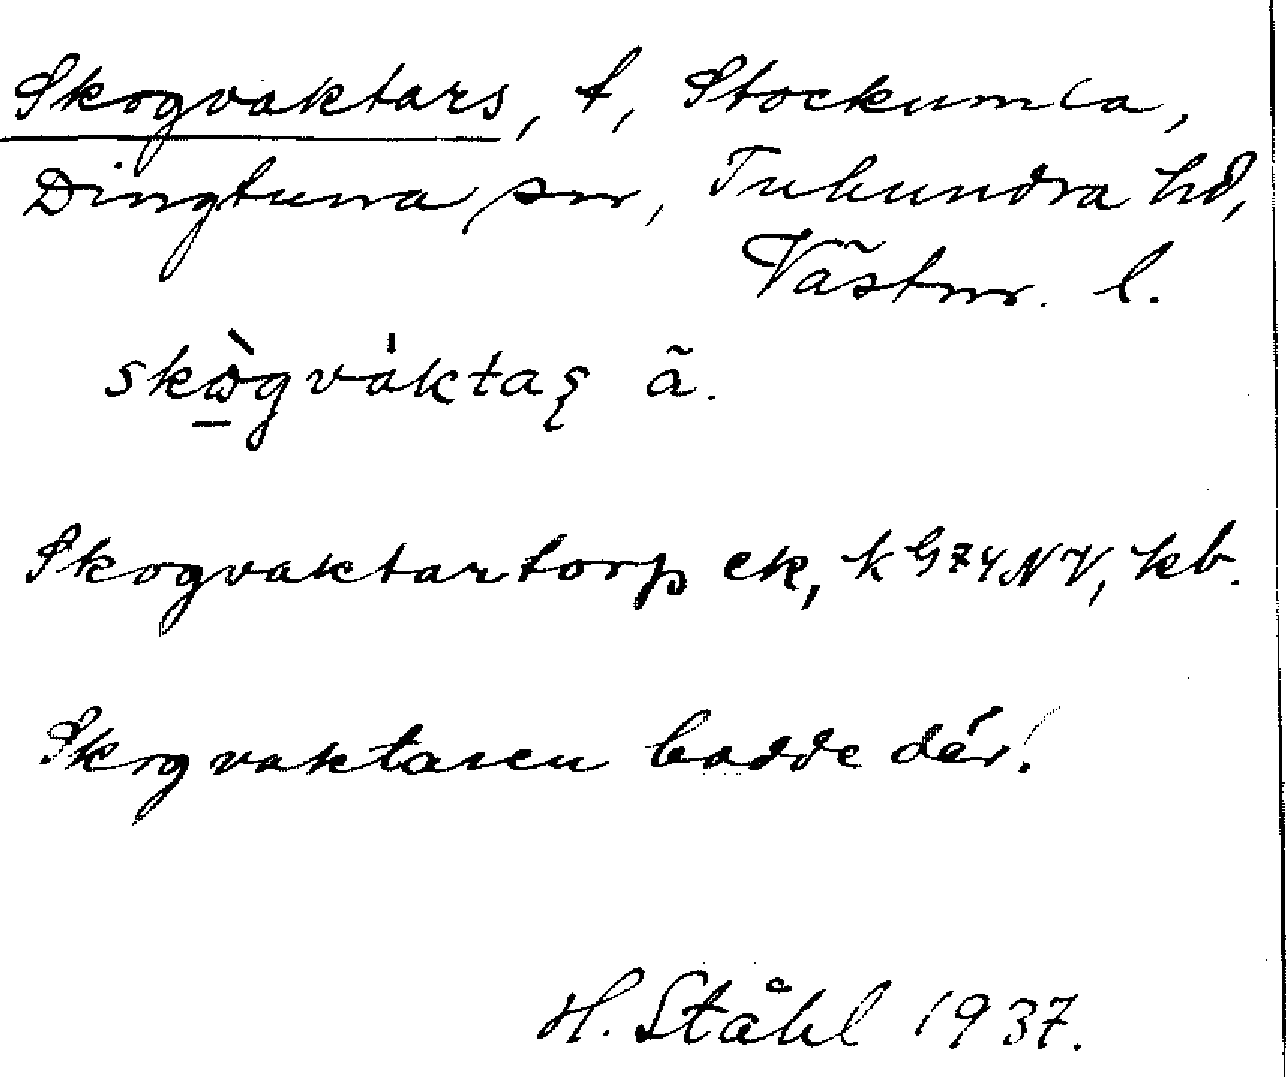 Skogvaktars, t, Stockumla,
Dingtuna sn, Tuhundra hd,
Västm. l.
skògvàktaʂ ã.
Skogvaktartorp ek, k G74NV, kb.
Skogvaktaren bodde där!
H. Ståhl 1937.